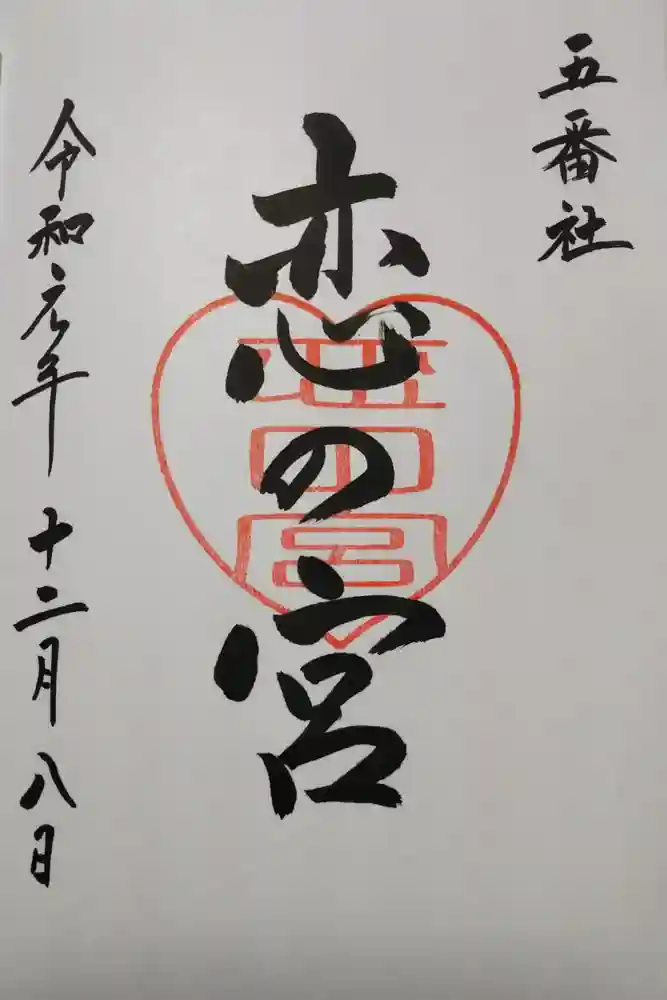 五番社
恋の宮
令和元年十二月八日